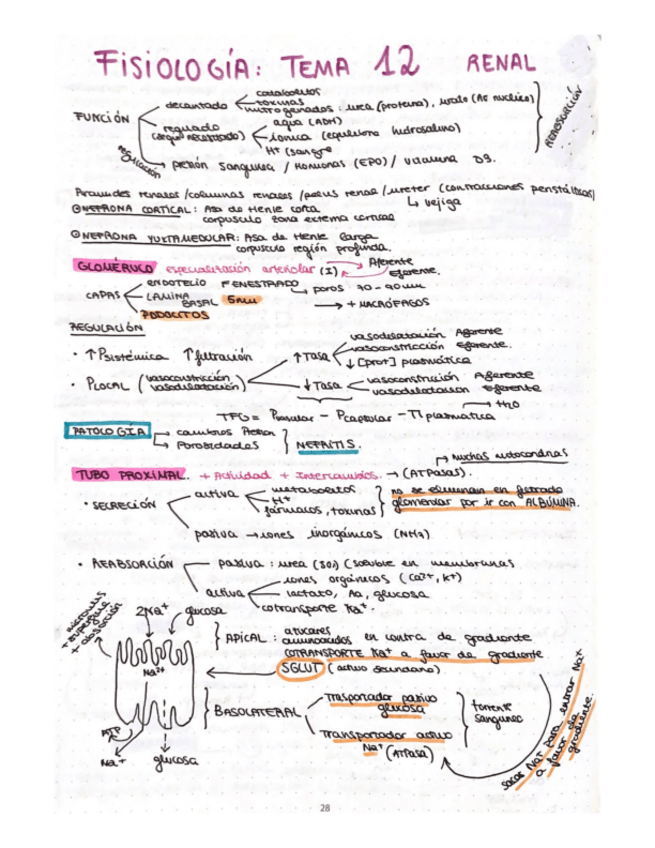 FISIOLOGÍA: TEMA 12 RENAL
FUNCIÓN
decantado
catabolitos
toxinas
nitrogenados: urea (proteína), urato (Ac nucleico)
regulado
agua (ADH)
iónica (equilibrio hidrosalino)
H+ (sangre
REABSORCIÓN
regulación
presión sanguínea / Hormonas (EPO) / vitamina D3.
Pirámides renales / columnas renales / pelvis renal / uréter (contracciones peristálticas)
↳ vejiga
NEFRONA CORTICAL: Asa de Henle corta
corpúsculo zona externa cortical
NEFRONA YUXTAMEDULAR: Asa de Henle larga
corpúsculo región profunda.
GLOMÉRULO especialización arteriolar (I)
Aferente
Eferente.
CAPAS
endotelio FENESTRADO
poros 70-90nm
LÁMINA BASAL 5nm
→ + MACRÓFAGOS
PODOCITOS
REGULACIÓN
· ↑Psistémica ↑filtración
· PLOCAL (vasoconstricción
vasodilatación)
↑Tasa
vasodilatación Aferente
vasoconstricción eferente.
↓[prot] plasmática
↓Tasa
vasoconstricción Aferente
vasodilatación eferente
→ H2O
TFG = Pcapsular - π plasmática
PATOLOGÍA
cambios Presión
Porosidades
NEFRITIS.
TUBO PROXIMAL. + Actividad + Intercambios. → (ATPasas).
muchas mitocondrias
· SECRECIÓN
activa
metabolitos
H+
fármacos, toxinas
no se eliminan en filtrado
glomerular por ir con ALBÚMINA.
pasiva → iones inorgánicos (NH3)
· REABSORCIÓN
pasiva: urea (50%) (soluble en membranas
activa
iones orgánicos (Ca2+, K+)
lactato, Aa, glucosa
cotransporte Na+.
microvilli
+ superficie
+ absorción
2Na+ glucosa
Na2+
ATP
Na+ glucosa
APICAL: azúcares
aminoácidos en contra de gradiente
COTRANSPORTE Na+ a favor de gradiente
SGLUT (activo secundario)
BASOLATERAL
Trasportador pasivo
glucosa
Transportador activo
Na+ (ATPasa)
torrente
sanguíneo
sacas Na+ para entrar Na+
a favor de
gradiente.
28